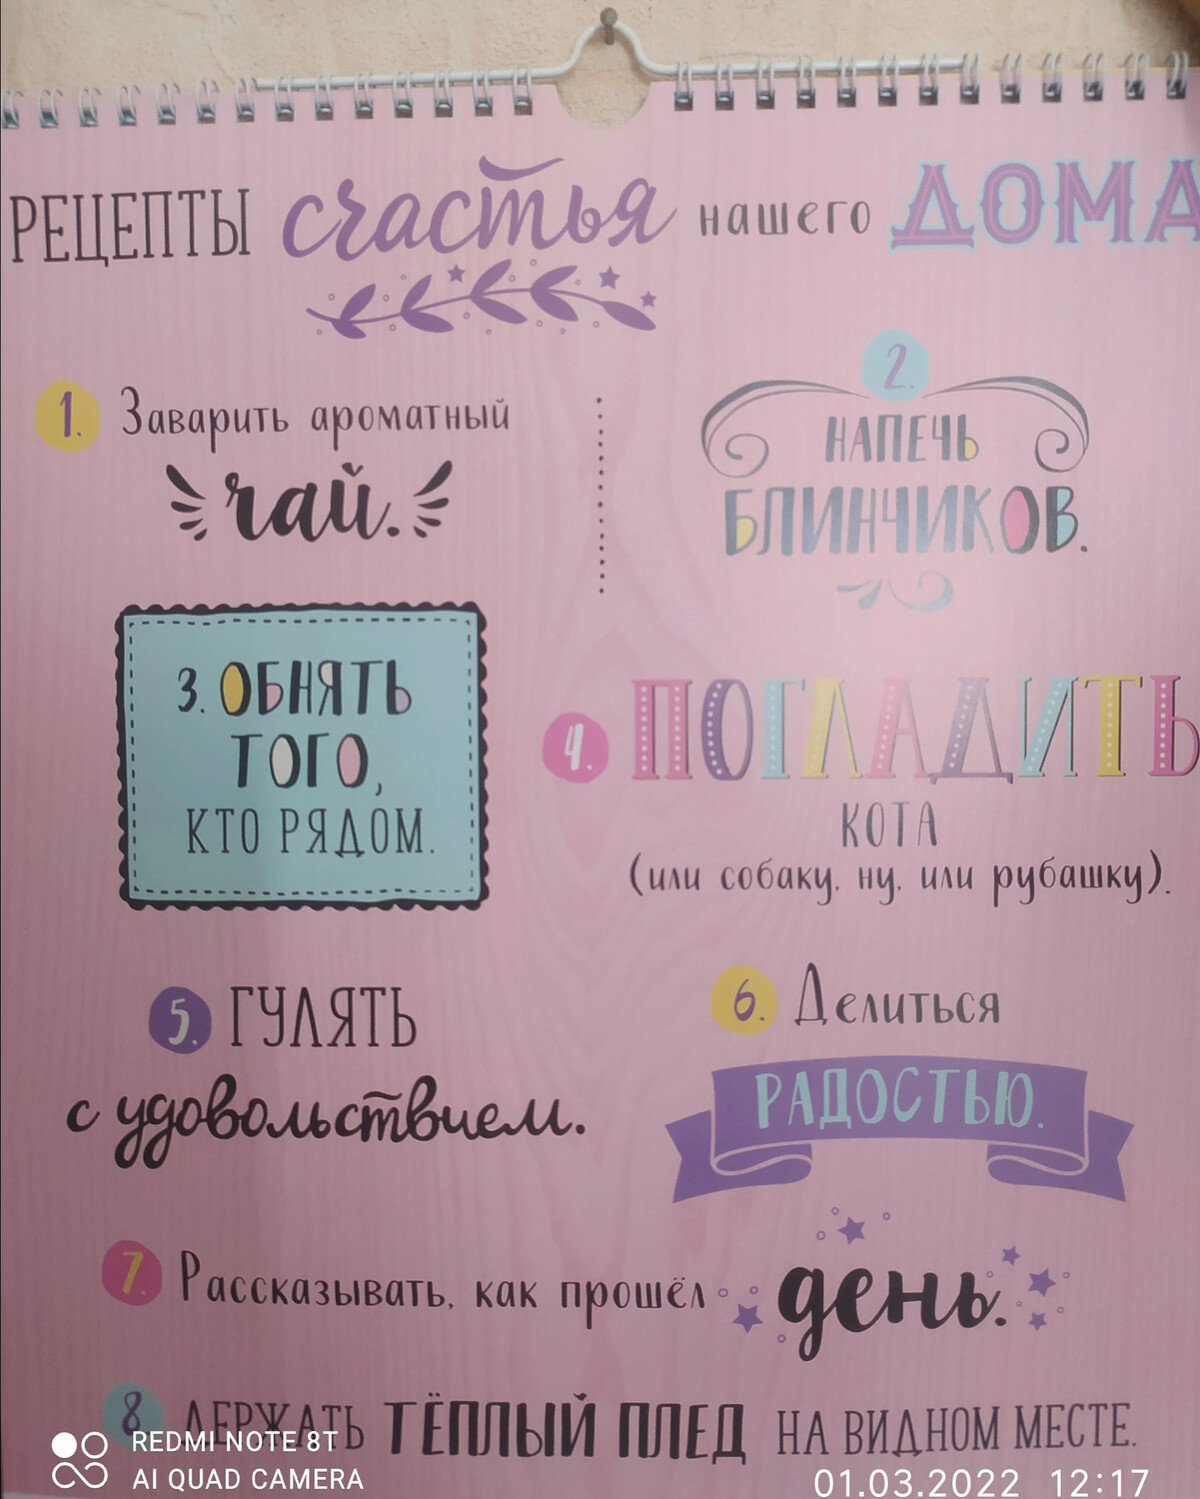 РЕЦЕПТЫ счастья нашего ДОМА
1. Заварить ароматный
чай.
2.
НАПЕЧЬ
БЛИНЧИКОВ.
3. ОБНЯТЬ
ТОГО,
КТО РЯДОМ.
4. ПОГЛАДИТЬ
КОТА
(или собаку, ну, или рубашку).
5. ГУЛЯТЬ
с удовольствием.
6. Делиться
РАДОСТЬЮ.
7. Рассказывать, как прошёл день.
8 ДЕРЖАТЬ ТЁПЛЫЙ ПЛЕД НА ВИДНОМ МЕСТЕ.
REDMI NOTE 8T
AI QUAD CAMERA
01.03.2022 12:17